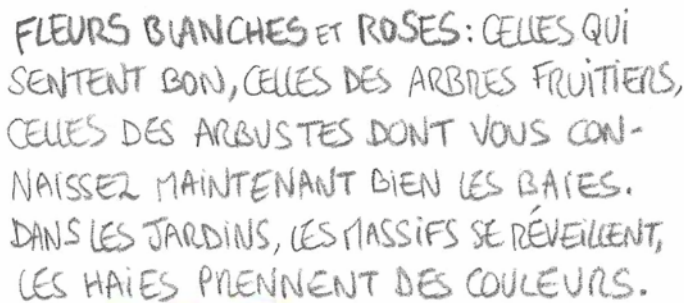 FLEURS BLANCHES ET ROSES : CELLES QUI
SENTENT BON, CELLES DES ARBRES FRUITIERS,
CELLES DES ARBUSTES DONT VOUS CON-
NAISSEZ MAINTENANT BIEN LES BAIES.
DANS LES JARDINS, LES MASSIFS SE RÉVEILLENT,
LES HAIES PRENNENT DES COULEURS.